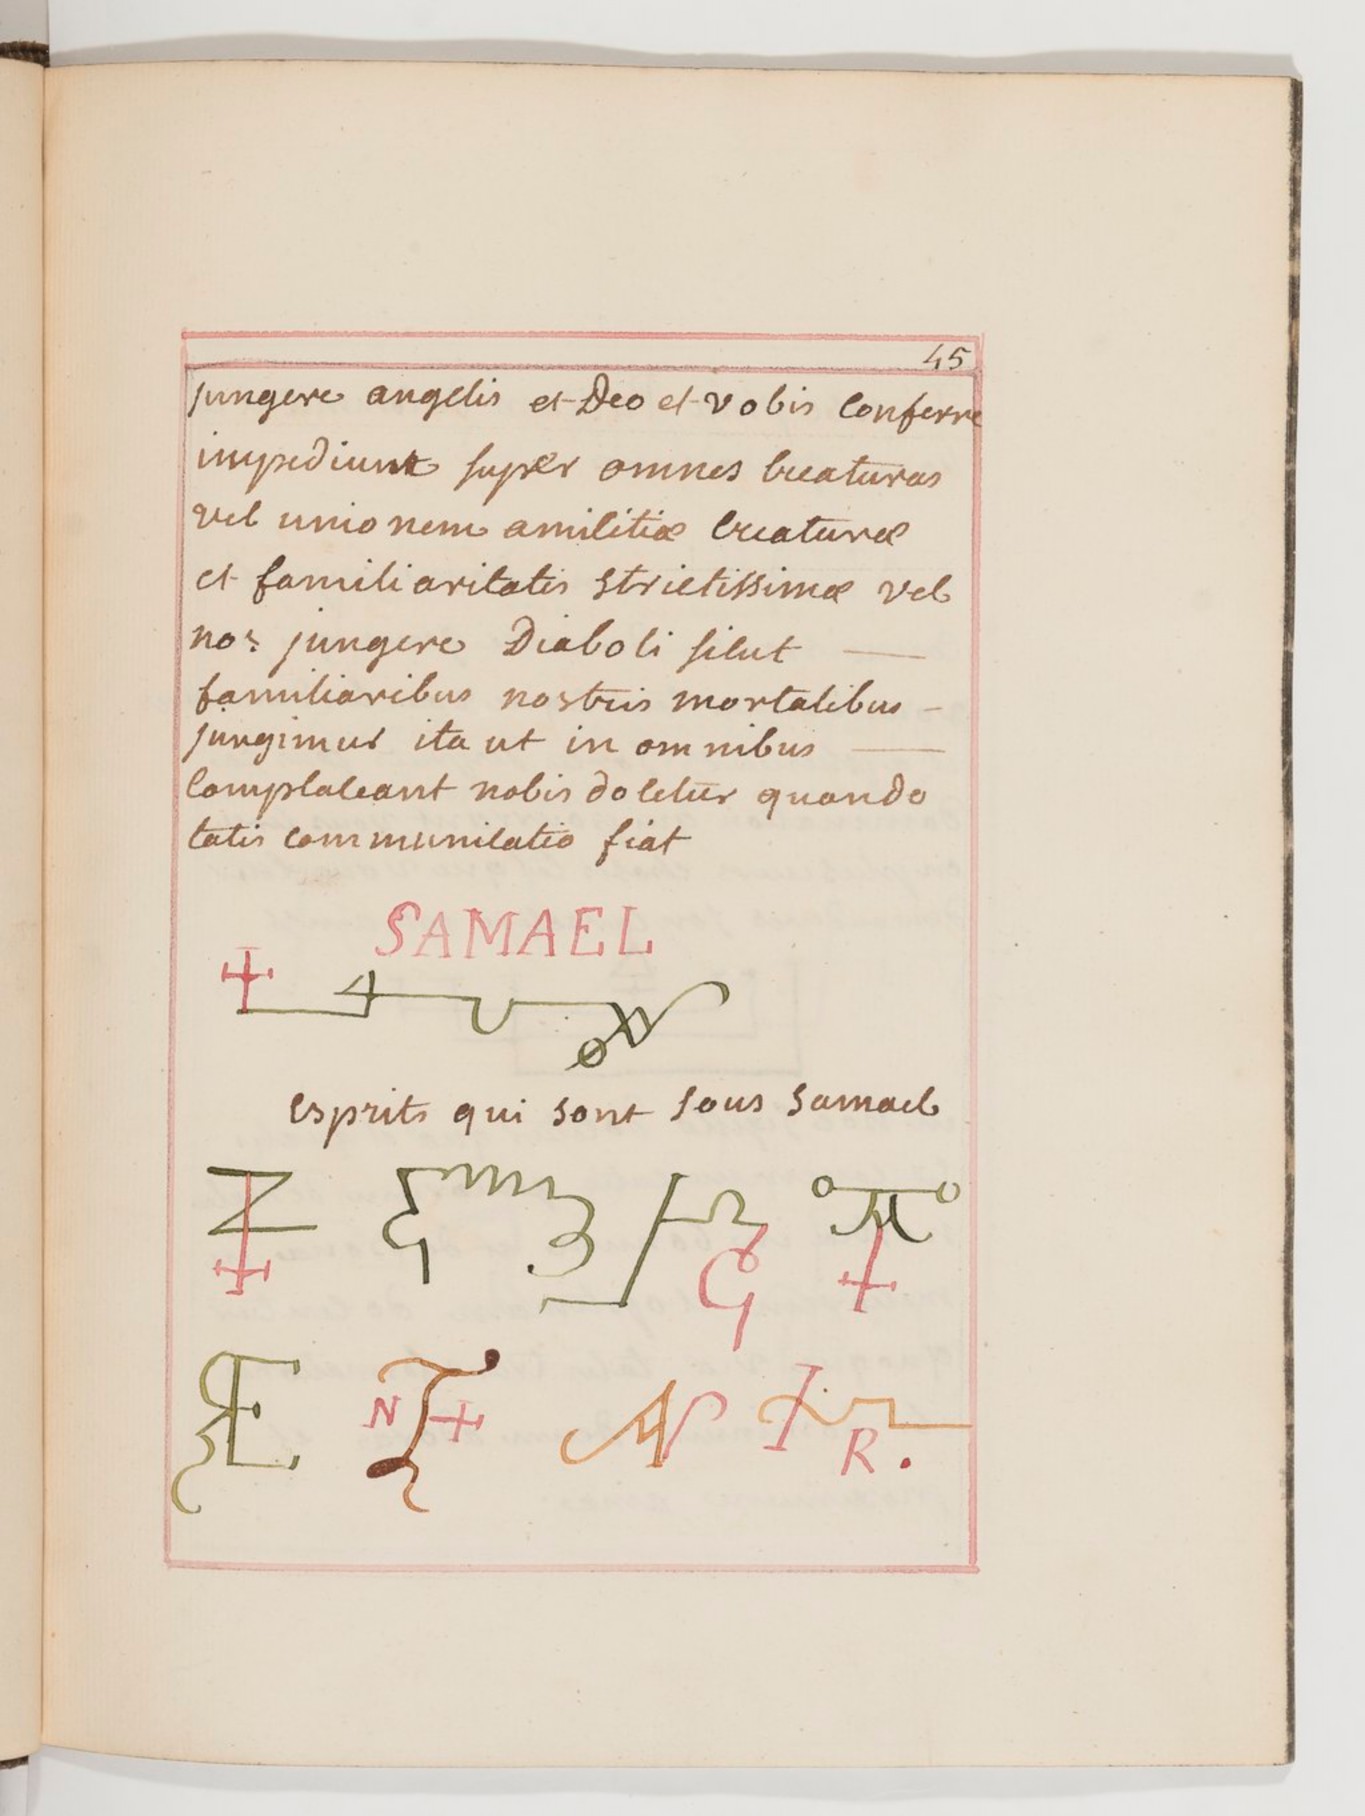 45
jungere angelis et Deo et vobis conferre
impediunt super omnes creaturas
vel unionem amicitiæ creaturæ
et familiaritatis strictissimæ vel
nos jungere Diaboli sicut
familiaribus nostris mortalibus
jungimur ita ut in omnibus
complaceant nobis docetur quando
talis communicatio fiat
SAMAEL
esprits qui sont sous Samael
G
N
R.